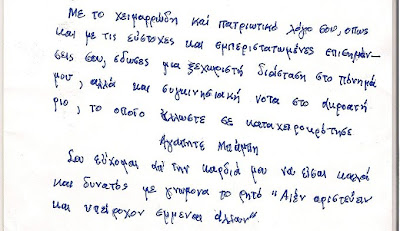 Με το χειμαρρώδη και πατριωτικό λόγο σου, οπως
και με τις εύστοχες και εμπεριστατωμένες επισημάν-
σεις σου, έδωσες μια ξεχωριστή διάσταση στο πόνημά
μου, αλλά και συγκινησιακή νοτα στο ακροατή
ριο, το οποίο άλλωστε σε καταχειροκρότησε
Αγαπητέ Μπάμπη
Σου εύχομαι απ' την καρδιά μου να είσαι καλά
και δυνατός με γνώμονα το ρητό "Αιέν αριστεύειν
και υπείροχον έμμεναι άλλων".